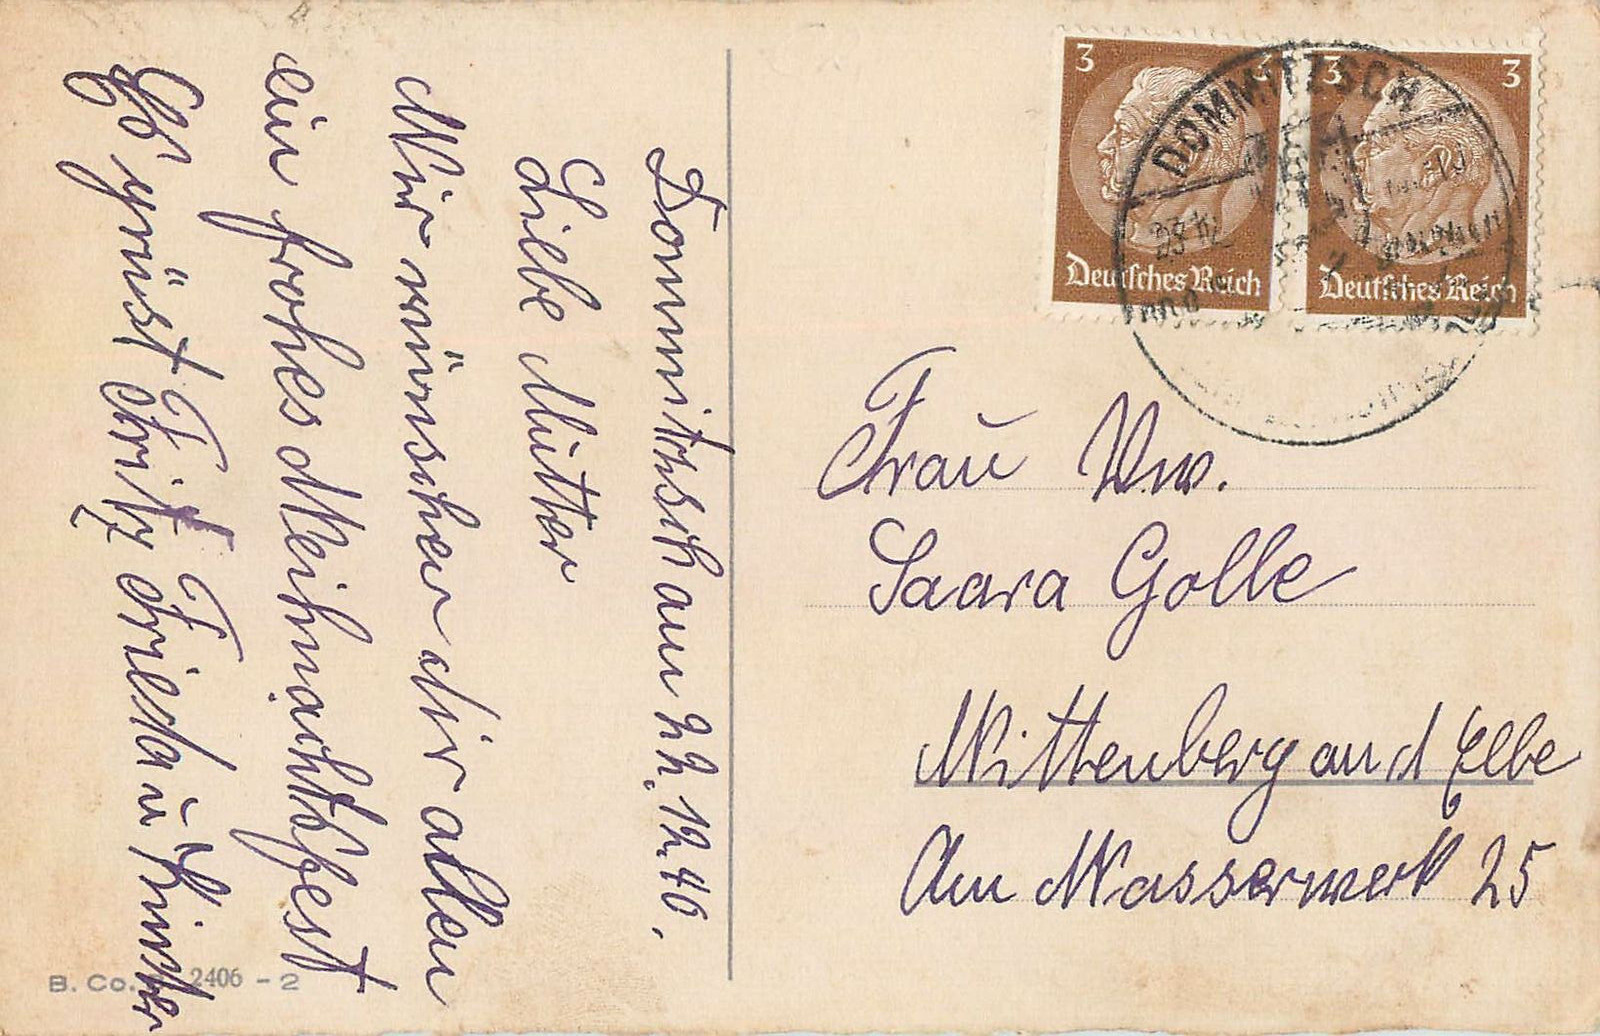 Dommitzsch am 22.12.40.
Liebe Mutter
Wir wünschen dir allen
ein frohes Weihnachtsfest
Es grüst Fritz Frieda u Kinder
B. Co. 2406 - 2
3 3
3 3
Deutsches Reich
Deutsches Reich
DOMMITZSCH
23.12
Frau Ww.
Saara Golle
Wittenberg an d Elbe
Am Wasserwerk 25